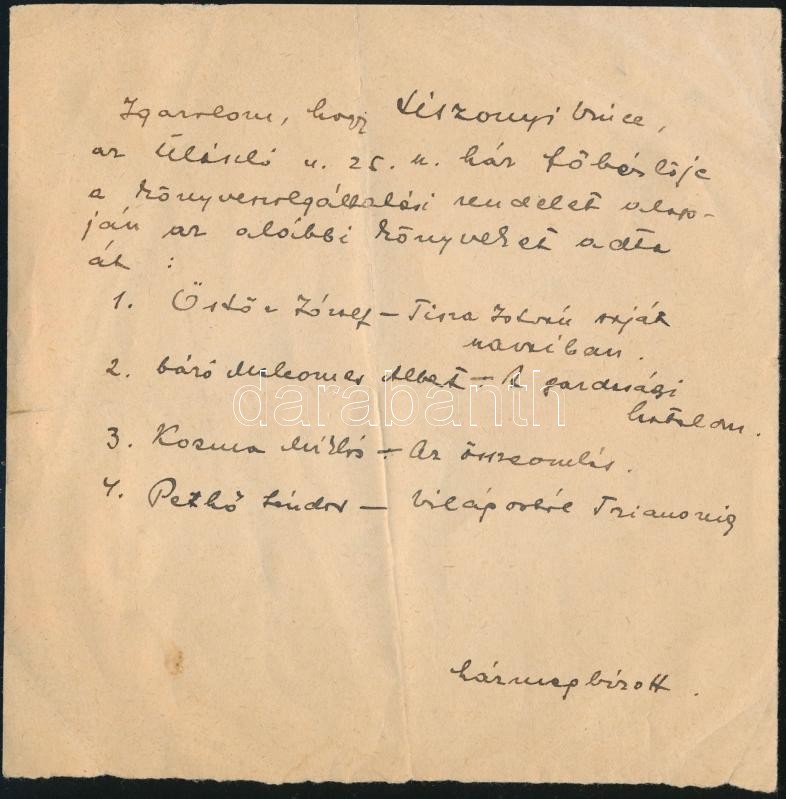 Igazolom, hogy Liszonyi Vince,
az Ulászló u. 25. u. ház főbérlője
a könyvszolgáltatási rendelet alap-
ján az alábbi könyveket adta
át :
1. Ősző József – Tisza István saját
szavaiban.
2. báró Albert – A gazdasági
hatalom.
darabanth
3. Kozma Miklós – Az összeomlás.
4. Pethő Sándor – Világostól Trianonig
házmegbízott.